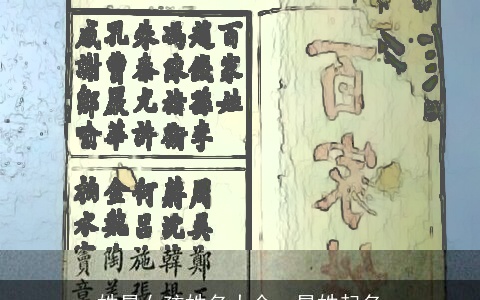 百家姓
百家姓
趙錢孫李
馮陳褚衛
朱秦尤許
孔曹嚴華
戚謝鄒喻
周吳鄭王
蔣沈韓楊
何呂施張
金魏陶姜
柏水竇章